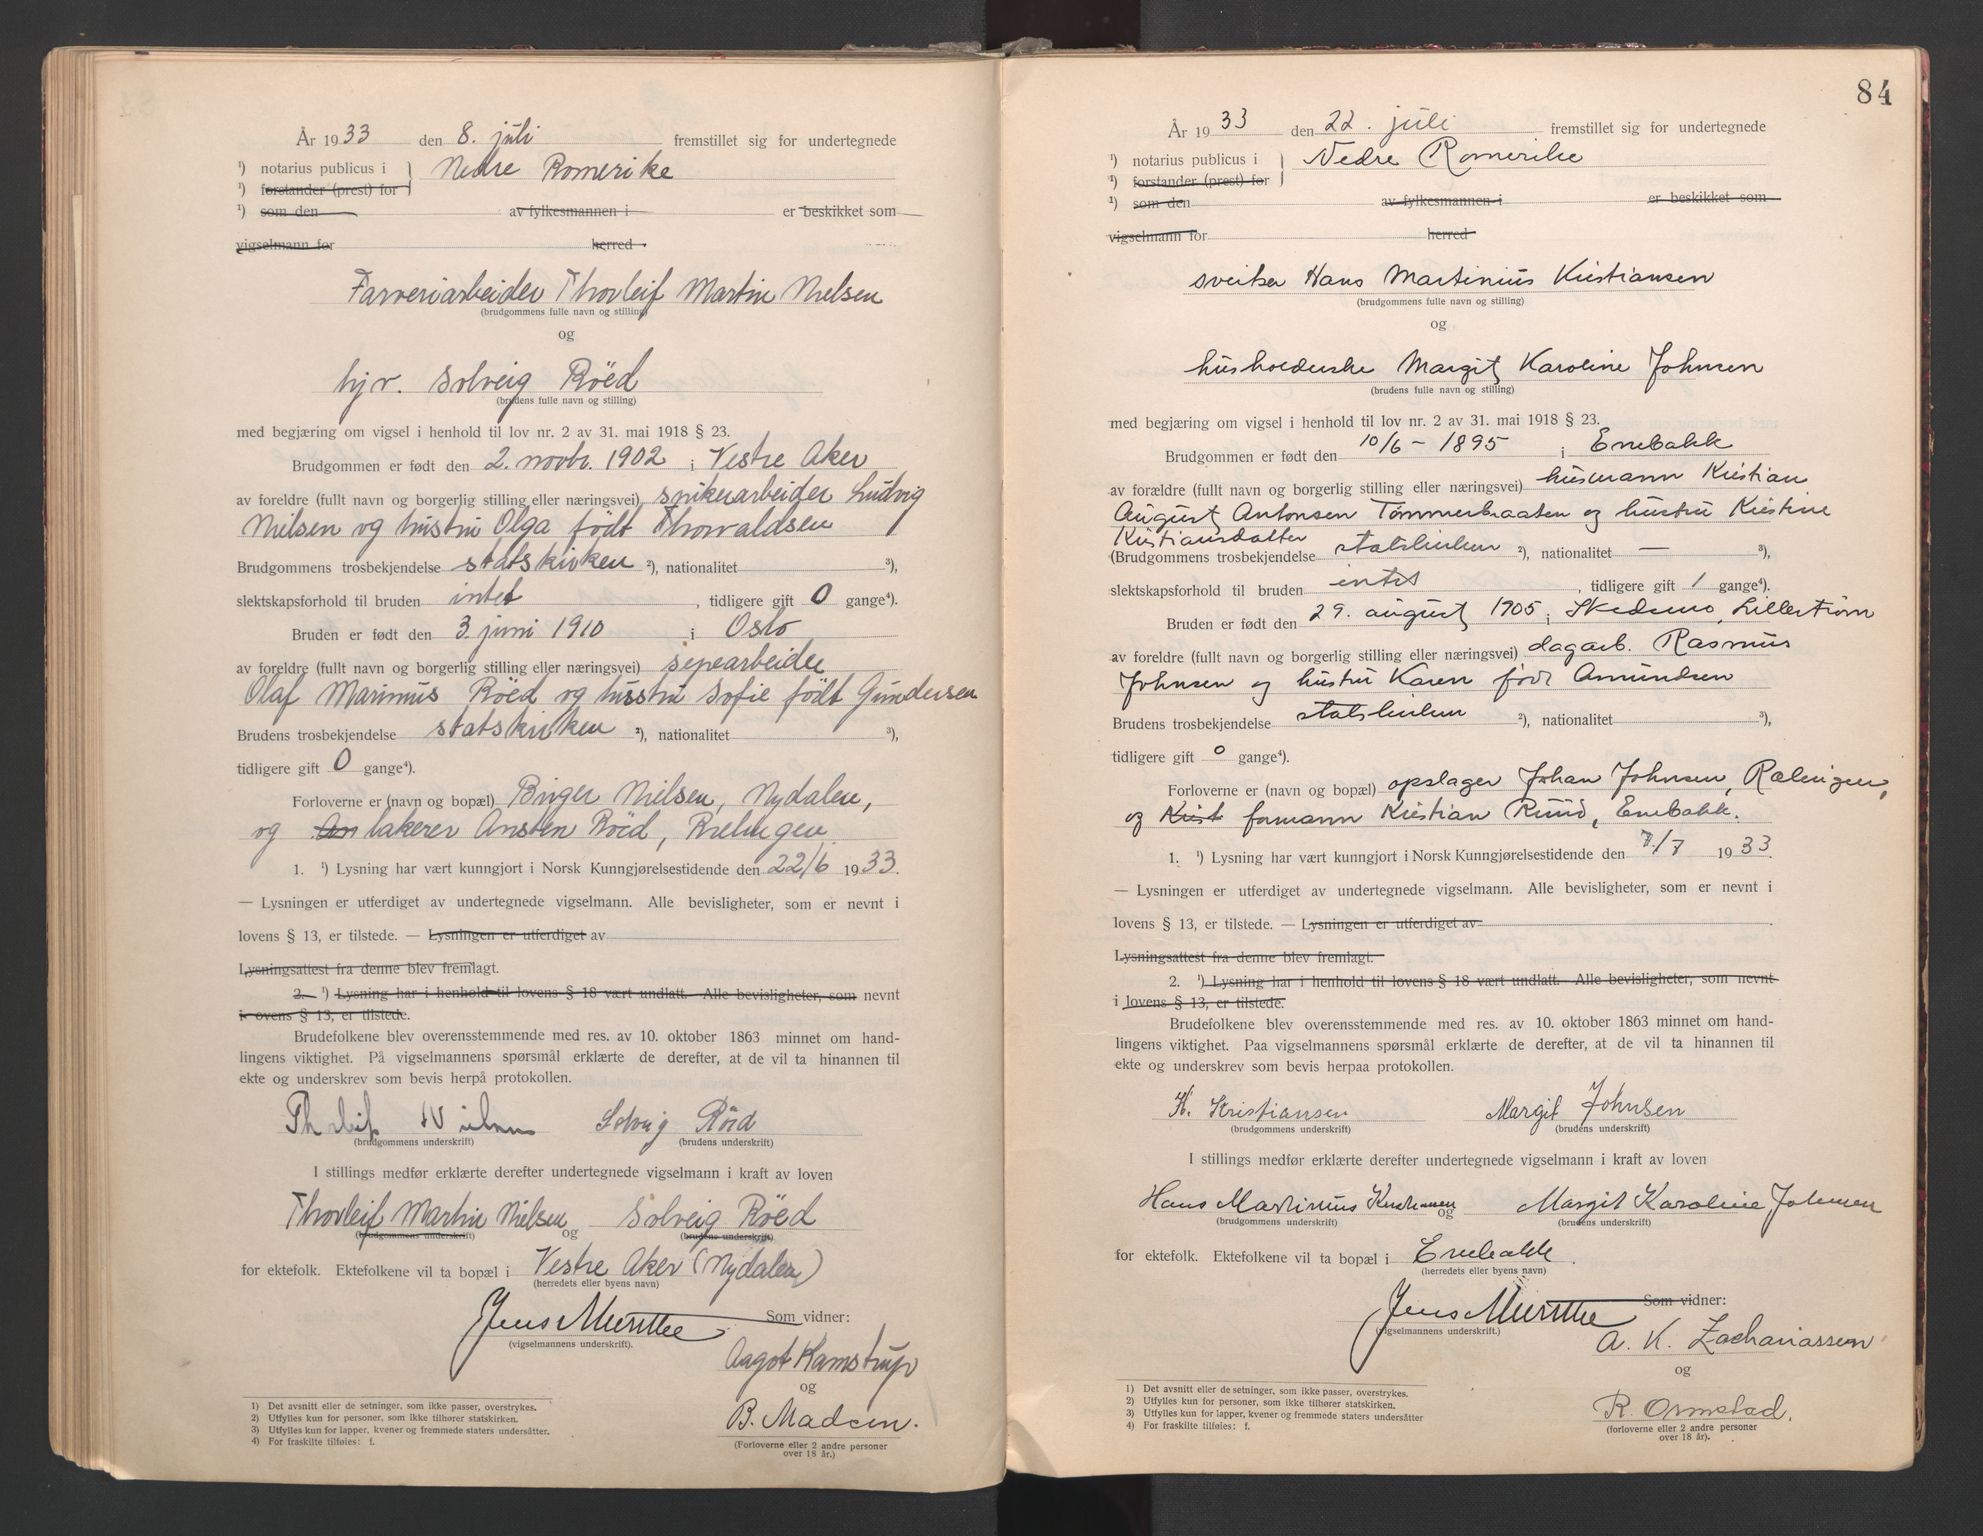 År 1933 den 8. juli fremstillet sig for undertegnede
¹) notarius publicus i } Nedre Romerike
¹) forstander (prest) for
¹) som den av fylkesmannen i er beskikket som
vigselmann for herred
Farveriarbeider Thorleif Martin Nielsen
(brudgommens fulle navn og stilling)
og
hjv. Solveig Röed
(brudens fulle navn og stilling)
med begjæring om vigsel i henhold til lov nr. 2 av 31. mai 1918 § 23.
Brudgommen er født den 2. novbr. 1902 i Vestre Aker
av foreldre (fullt navn og borgerlig stilling eller næringsvei) spikerarbeider Ludvig
Nielsen og hustru Olga født Thorvaldsen
Brudgommens trosbekjendelse statskirken ²), nationalitet ³),
slektskapsforhold til bruden intet, tidligere gift 0 gange⁴).
Bruden er født den 3. juni 1910 i Oslo
av foreldre (fullt navn og borgerlig stilling eller næringsvei) sepearbeider
Olaf Marinius Röed og husstru Sofie født Gundersen
Brudens trosbekjendelse statskirken ²), nationalitet ³),
tidligere gift 0 gange⁴).
Forloverne er (navn og bopæl) Birger Nielsen, Nydalen,
og An lakerer Ansten Röed, Rælingen
1. ¹) Lysning har vært kunngjort i Norsk Kunngjørelsestidende den 22/6 1933.
— Lysningen er utferdiget av undertegnede vigselmann. Alle bevisligheter, som er nevnt i
lovens § 13, er tilstede. — Lysningen er utferdiget av
Lysningsattest fra denne blev fremlagt.
2. ¹) Lysning har i henhold til lovens § 18 vært undlatt. Alle bevisligheter, som nevnt
i ovens § 13, er tilstede.
Brudefolkene blev overensstemmende med res. av 10. oktober 1863 minnet om hand-
lingens viktighet. På vigselmannens spørsmål erklærte de derefter, at de vil ta hinannen til
ekte og underskrev som bevis herpå protokollen.
Thorleif Nielsen Solveig Röed
(brudgommens underskrift) (brudens underskrift)
I stillings medfør erklærte derefter undertegnede vigselmann i kraft av loven
Thorleif Martin Nielsen og Solveig Röed
(brudgommens underskrift) (brudens underskrift)
for ektefolk. Ektefolkene vil ta bopæl i Vestre Aker (Nydalen)
(herredets eller byens navn)
Jens Münthe Som vidner:
(vigselmannens underskrift).
Aagot Kamstrup
og
B. Madsen.
(Forloverne eller 2 andre personer
over 18 år.)
1) Det avsnitt eller de setninger, som ikke passer, overstrykes.
2) Utfylles kun for personer, som ikke tilhører statskirken.
3) Utfylles kun for lapper, kvener og fremmede staters undersåtter.
4) For fraskilte tilføies: f.
84
År 1933 den 22. juli fremstillet sig for undertegnede
¹) notarius publicus i } Nedre Romerike
¹) forstander (prest) for
¹) som den av fylkesmannen i er beskikket som
vigselmann for herred
sveitser Hans Martinius Kristiansen
(brudgommens fulle navn og stilling)
og
husholderske Margit Karoline Johnsen
(brudens fulle navn og stilling)
med begjæring om vigsel i henhold til lov nr. 2 av 31. mai 1918 § 23.
Brudgommen er født den 10/6 - 1895 i Enebakk
av forældre (fullt navn og borgerlig stilling eller næringsvei) husmann Kristian
August Antonsen Tømmerbraaten og hustru Kristine
Kristiansdatter
(Brudgommens trosbekjendelse statskirken ²), nationalitet — ³),
slektskapsforhold til bruden intet, tidligere gift 1 gange⁴).
Bruden er født den 29. august 1905 i Skedsmo, Lillestrøm
av foreldre (fullt navn og borgerlig stilling eller næringsvei) dagarb. Rasmus
Johnsen og hustru Karen født Amundsen
Brudens trosbekjendelse statskirken ²), nationalitet ³),
tidligere gift 0 gange⁴).
Forloverne er (navn og bopæl) opslager Johan Johnsen, Rælingen,
og Krist formann Kristian Ruud, Enebakk.
1. ¹) Lysning har vært kunngjort i Norsk Kunngjørelsestidende den 7/7 1933.
— Lysningen er utferdiget av undertegnede vigselmann. Alle bevisligheter, som er nevnt i
lovens § 13, er tilstede. — Lysningen er utferdiget av
Lysningsattest fra denne blev fremlagt.
2. ¹) Lysning har i henhold til lovens § 18 vært undlatt. Alle bevisligheter, som nevnt
i lovens § 13, er tilstede.
Brudefolkene blev overensstemmende med res. av 10. oktober 1863 minnet om hand-
lingens viktighet. Paa vigselmannens spørsmål erklærte de derefter, at de vil ta hinannen til
ekte og underskrev som bevis herpaa protokollen.
H. Kristiansen Margit Johnsen
(brudgommens underskrift) (brudens underskrift)
I stillings medfør erklærte derefter undertegnede vigselmann i kraft av loven
Hans Martinius Kristiansen og Margit Karoline Johnsen
(brudgommens underskrift) (brudens underskrift)
for ektefolk. Ektefolkene vil ta bopæl i Enebakk.
(herredets eller byens navn)
Jens Münthe Som vidner:
(vigselmannens underskrift.)
A. K. Zachariassen
og
R. Ormstad.
(forloverne eller 2 andre personer
over 18 år).
1) Det avsnitt eller de setninger, som ikke passer, overstrykes.
2) Utfylles kun for personer, som ikke tilhører statskirken.
3) Utfylles kun for lapper, kvener og fremmede staters undersåtter
4) For fraskilte tilføies: f.